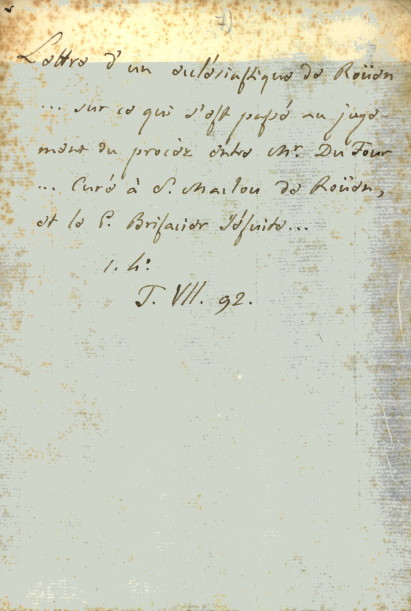 7)
Lettre d'un ecclésiastique de Roüen
... sur ce qui s'est passé au juge-
ment du procéz entre Mr. Du Four
... Curé à S. Maclou de Roüen,
et le P. Brisacier Jésuite...
1. 4°.
T. VII. 92.